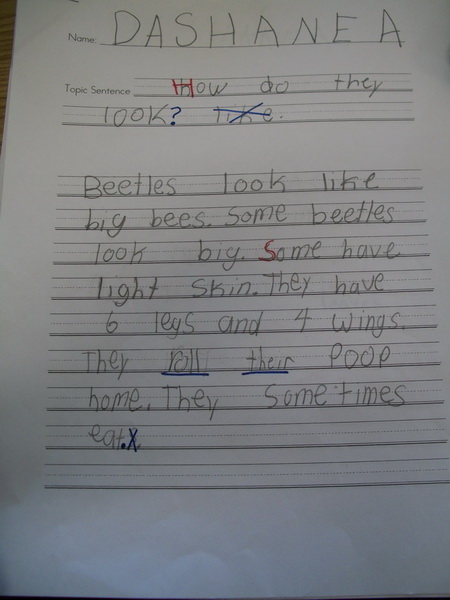 Name: DASHANEA
Topic Sentence How do they
look? like.
Beetles look like
big bees. Some beetles
look big. Some have
light skin. They have
6 legs and 4 wings.
They roll their poop
home. They Sometimes
eat.x